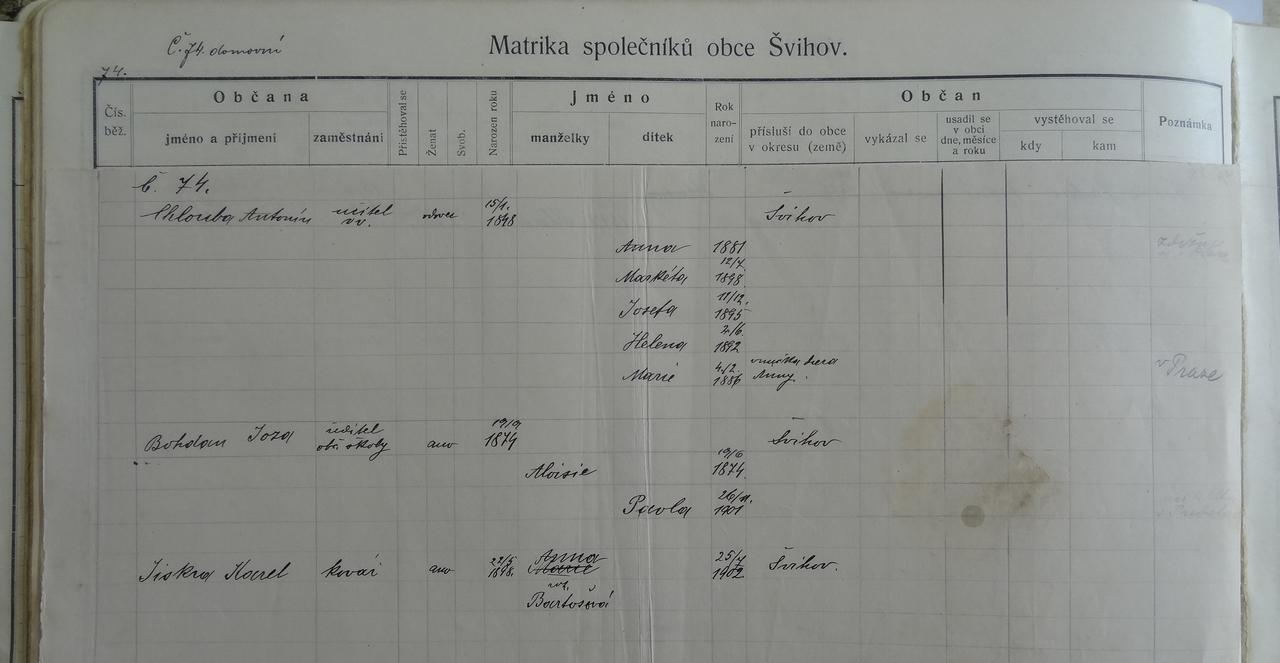 Č. 74. domovní
Matrika společníků obce Švihov.
74.
Čís. běž.
Občana
jméno a příjmení
zaměstnání
Přistěhoval se
Ženat
Svob.
Narozen roku
Jméno
manželky
dítek
Rok naro- zení
Občan
přísluší do obce v okresu (země)
vykázal se
usadil se v obci dne, měsíce a roku
vystěhoval se
kdy
kam
Poznámka
č. 74.
Chlouba Antonín učitel vv. vdovec 1848 Švihov
Anna 1881
Markéta 12/7. 1898
Josefa 11/12. 1895
Helena 2/6. 1892
Marie 4/2. 1886 vnučka dcera Anny. v Praze
Bohdan Joza učitel obč. školy ano 1874 Švihov
Aloisie 19/6 1874.
Pavla 26/11. 1901
Jiskra Karel kovář ano 22/5 1898. Anna 25/7 1902 Švihov.
roz.
Bartošová